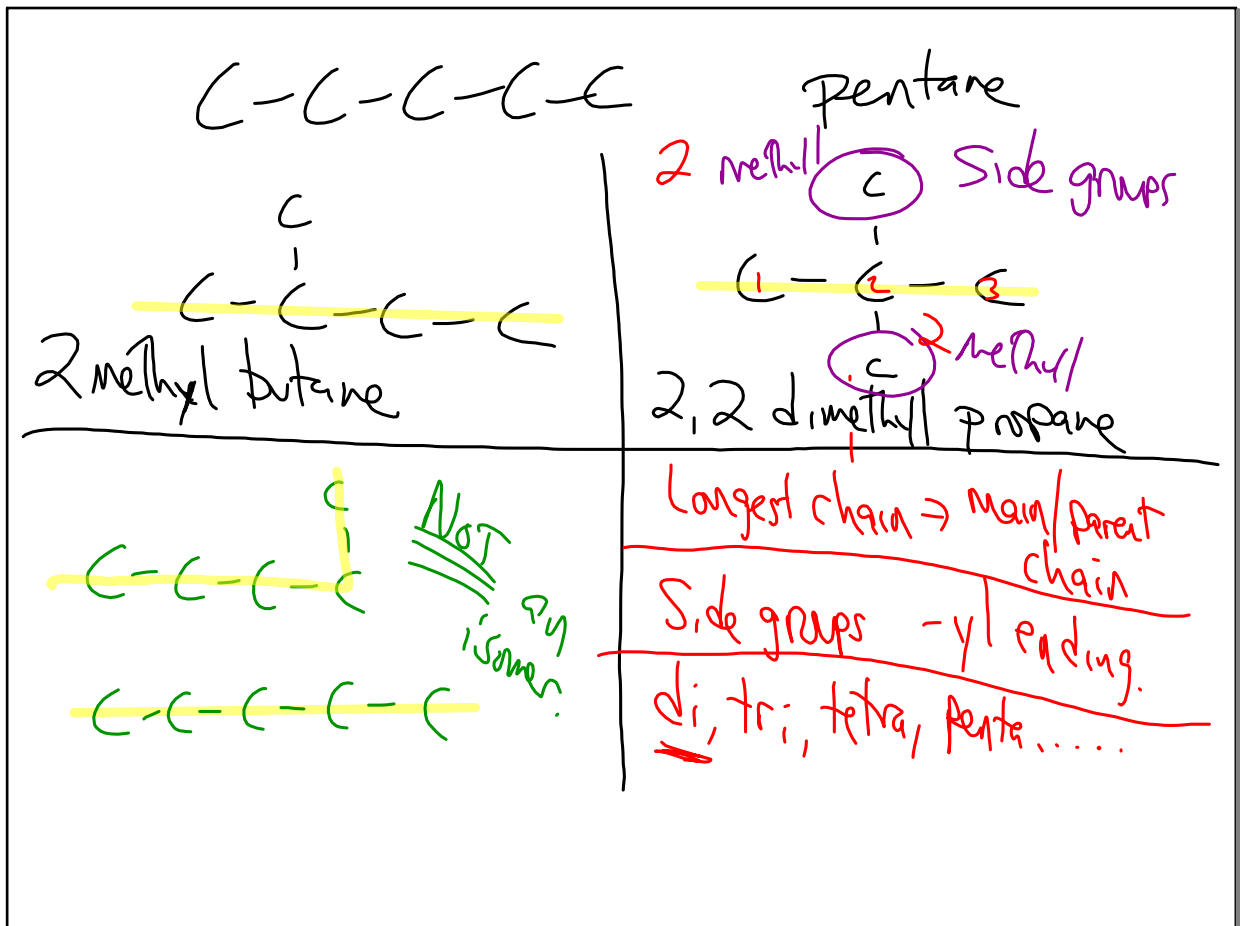 C - C - C - C - C pentane
2 methyl C Side groups
C
|
C - C - C - C
2 methyl butane
|
C 1 - C 2 - C 3
|
C 2 methyl
2,2 dimethyl propane
C
|
C - C - C - C
NOT
an
isomer.
C - C - C - C - C
1
Longest chain → main/parent
chain
Side groups -yl ending.
di, tri, tetra, penta.....